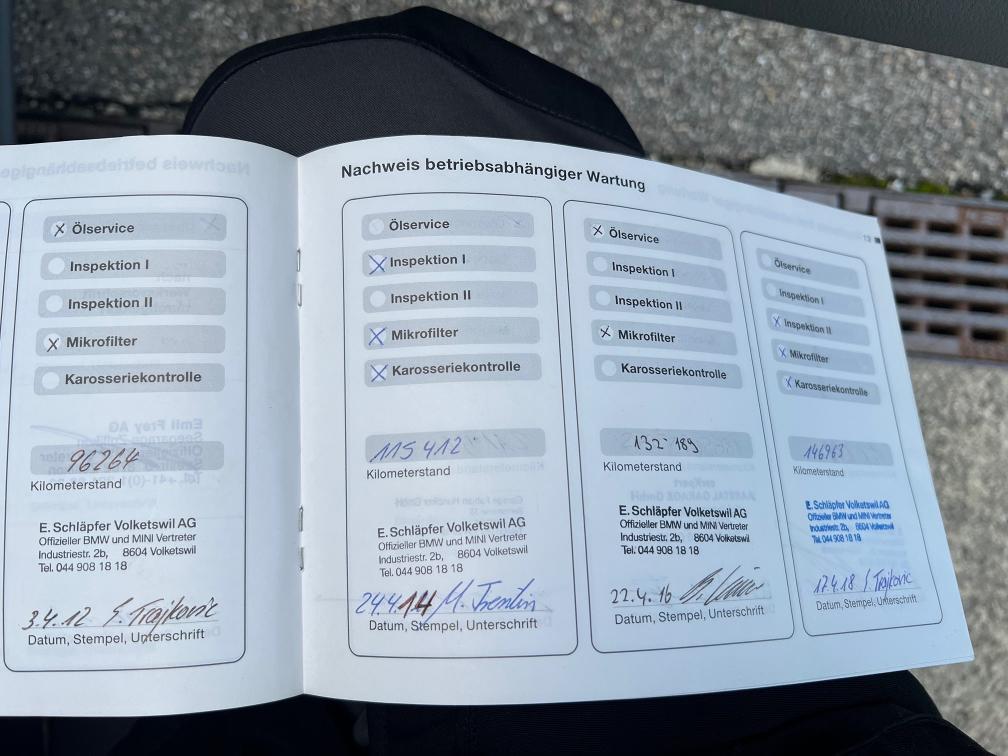 Nachweis betriebsabhängiger Wartung
X Ölservice
Inspektion I
Inspektion II
X Mikrofilter
Karosseriekontrolle
96264
Kilometerstand
E. Schläpfer Volketswil AG
Offizieller BMW und MINI Vertreter
Industriestr. 2b, 8604 Volketswil
Tel. 044 908 18 18
3.4.12 S. Trajkovic
Datum, Stempel, Unterschrift
Ölservice
X Inspektion I
Inspektion II
X Mikrofilter
X Karosseriekontrolle
115 412
Kilometerstand
E. Schläpfer Volketswil AG
Offizieller BMW und MINI Vertreter
Industriestr. 2b, 8604 Volketswil
Tel. 044 908 18 18
24.4.14 M. Trentin
Datum, Stempel, Unterschrift
X Ölservice
Inspektion I
Inspektion II
X Mikrofilter
Karosseriekontrolle
132 189
Kilometerstand
E. Schläpfer Volketswil AG
Offizieller BMW und MINI Vertreter
Industriestr. 2b, 8604 Volketswil
Tel. 044 908 18 18
22.4.16
Datum, Stempel, Unterschrift
13
Ölservice
Inspektion I
X Inspektion II
X Mikrofilter
X Karosseriekontrolle
146963
Kilometerstand
E. Schläpfer Volketswil AG
Offizieller BMW und MINI Vertreter
Industriestr. 2b, 8604 Volketswil
Tel. 044 908 18 18
17.4.18 S. Trajkovic
Datum, Stempel, Unterschrift